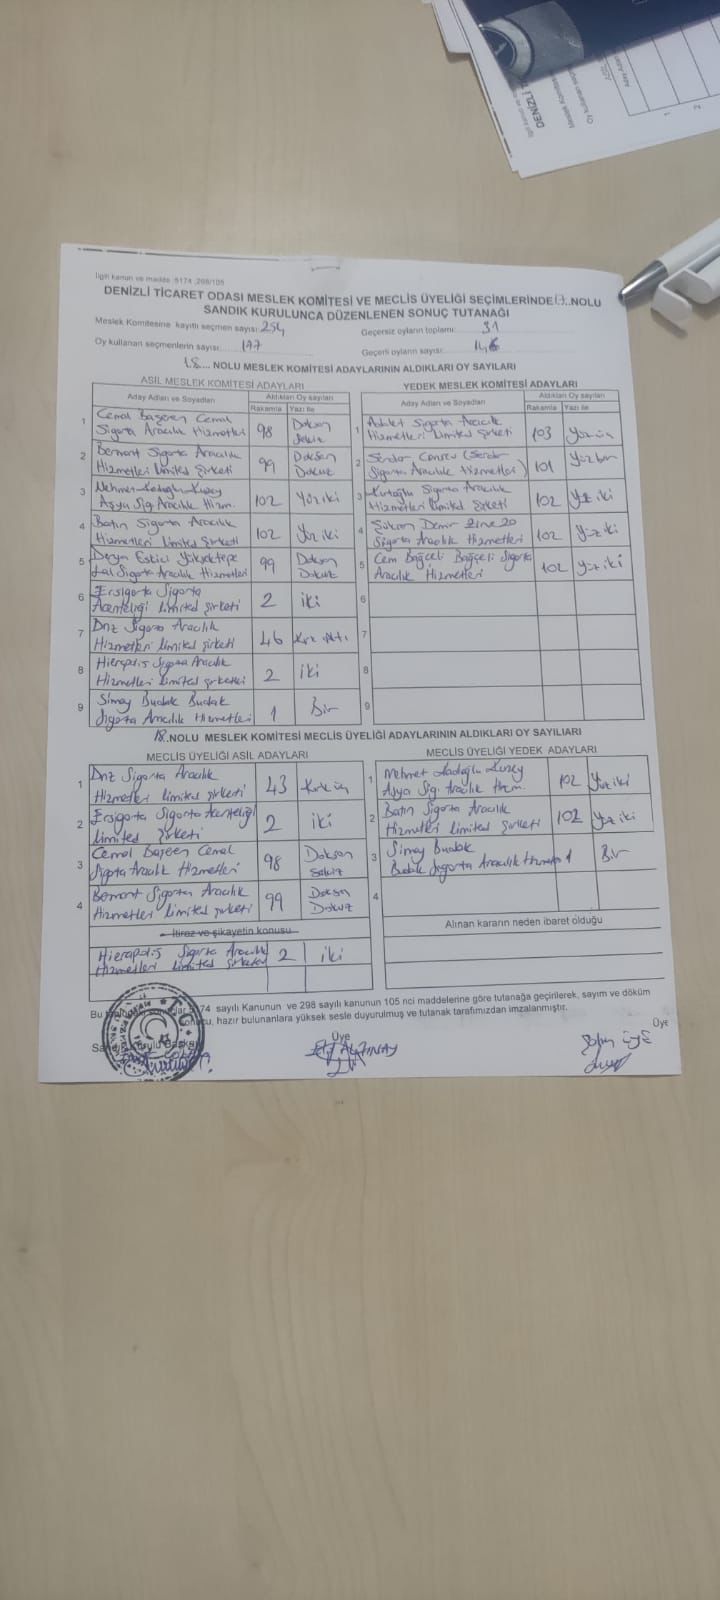 İlgili kanun ve madde :5174 ,298/105
DENİZLİ TİCARET ODASI MESLEK KOMİTESİ VE MECLİS ÜYELİĞİ SEÇİMLERİNDE 17..NOLU
SANDIK KURULUNCA DÜZENLENEN SONUÇ TUTANAĞI
Meslek Komitesine kayıtlı seçmen sayısı: 254 Geçersiz oyların toplamı: 31
Oy kullanan seçmenlerin sayısı: 177 Geçerli oyların sayısı: 146
18... NOLU MESLEK KOMİTESİ ADAYLARININ ALDIKLARI OY SAYILARI
ASIL MESLEK KOMİTESİ ADAYLARI
Aday Adları ve Soyadları Aldıkları Oy sayıları
Rakamla Yazı ile
1 Cemal Başeren Cemal
Sigorta Aracılık Hizmetleri 98 Doksan Sekiz
2 Bernont Sigorta Aracılık
Hizmetleri Limited Şirketi 99 Doksan Dokuz
3 Mehmet Kadıoğlu Kuzey
Asya Sig. Aracılık Hizm. 102 Yüz iki
4 Batın Sigorta Aracılık
Hizmetleri Limited Şirketi 102 Yüz iki
5 Derya Estici Yüksektepe
Lal Sigorta Aracılık Hizmetleri 99 Doksan Dokuz
6 Ersigorta Sigorta
Acenteliği limited şirketi 2 iki
7 Dnz Sigorta Aracılık
Hizmetleri limited şirketi 46 Kırk Altı
8 Hierapolis Sigorta Aracılık
Hizmetleri Limited şirketi 2 iki
9 Simay Budak Budak
Sigorta Aracılık Hizmetleri 1 Bir
YEDEK MESLEK KOMİTESİ ADAYLARI
Aday Adları ve Soyadları Aldıkları Oy sayıları
Rakamla Yazı ile
1 Adalet Sigorta Aracılık
Hizmetleri Limited Şirketi 103 Yüz üç
2 Serdar Cansev (Serdar
Sigorta Aracılık Hizmetleri) 101 Yüz bir
3 Sigorta Aracılık
Hizmetleri Limited şirketi 102 Yüz iki
4 Şükran Demir 2020
Sigorta Aracılık Hizmetleri 102 Yüz iki
5 Cem Bağçeli Bağçeli Sigorta
Aracılık Hizmetleri 102 Yüz iki
6
7
8
9
18.NOLU MESLEK KOMİTESİ MECLİS ÜYELİĞİ ADAYLARININ ALDIKLARI OY SAYILIARI
MECLİS ÜYELİĞİ ASİL ADAYLARI
1 Dnz Sigorta Aracılık
Hizmetleri limited şirketi 43 Kırk üç
2 Ersigorta Sigorta Acenteliği
limited şirketi 2 iki
3 Cemal Başeren Cemal
Sigorta Aracılık Hizmetleri 98 Doksan Sekiz
4 Bernont Sigorta Aracılık
Hizmetleri Limited şirketi 99 Doksan Dokuz
İtiraz ve şikayetin konusu
Hierapolis Sigorta Aracılık
Hizmetleri Limited Şirketi 2 iki
MECLİS ÜYELİĞİ YEDEK ADAYLARI
1 Mehmet Kadıoğlu Kuzey
Asya Sig. Aracılık Hizm. 102 Yüz iki
2 Batın Sigorta Aracılık
Hizmetleri Limited Şirketi 102 Yüz iki
3 Simay Budak
Budak Sigorta Aracılık Hizmetleri 1 Bir
4
Alınan kararın neden ibaret olduğu
sayılı Kanunun ve 298 sayılı kanunun 105 nci maddelerine göre tutanağa geçirilerek, sayım ve döküm
sonucu, hazır bulunanlara yüksek sesle duyurulmuş ve tutanak tarafımızdan imzalanmıştır.
Sandık Kurulu Başkanı Üye Üye